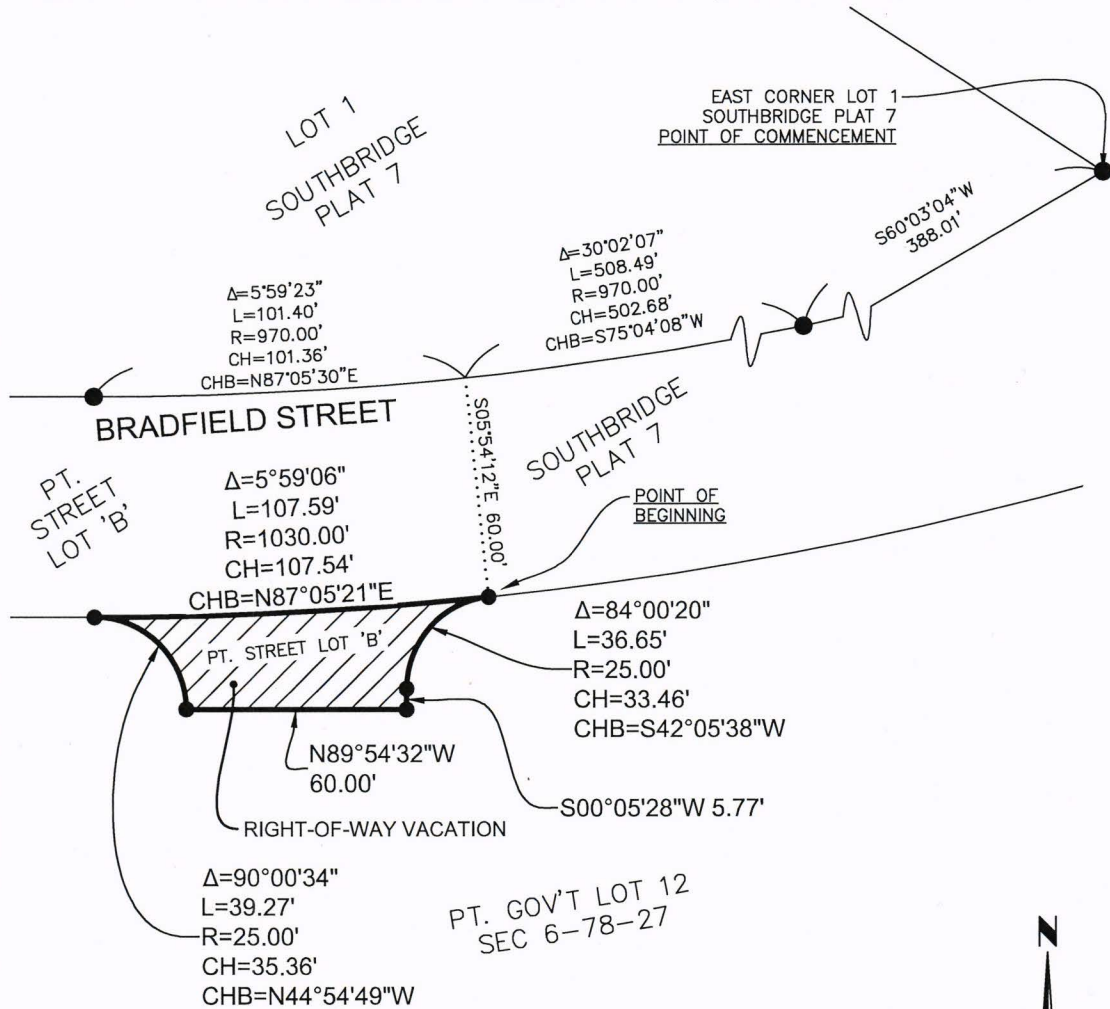 EAST CORNER LOT 1
SOUTHBRIDGE PLAT 7
POINT OF COMMENCEMENT
LOT 1
SOUTHBRIDGE
PLAT 7
S60°03'04"W
388.01'
Δ=30°02'07"
L=508.49'
R=970.00'
CH=502.68'
CHB=S75°04'08"W
Δ=5°59'23"
L=101.40'
R=970.00'
CH=101.36'
CHB=N87°05'30"E
BRADFIELD STREET
S05°54'12"E 60.00'
SOUTHBRIDGE
PLAT 7
PT.
STREET
LOT 'B'
Δ=5°59'06"
L=107.59'
R=1030.00'
CH=107.54'
CHB=N87°05'21"E
POINT OF
BEGINNING
PT. STREET LOT 'B'
Δ=84°00'20"
L=36.65'
R=25.00'
CH=33.46'
CHB=S42°05'38"W
N89°54'32"W
60.00'
S00°05'28"W 5.77'
RIGHT-OF-WAY VACATION
Δ=90°00'34"
L=39.27'
R=25.00'
CH=35.36'
CHB=N44°54'49"W
PT. GOV'T LOT 12
SEC 6-78-27
N